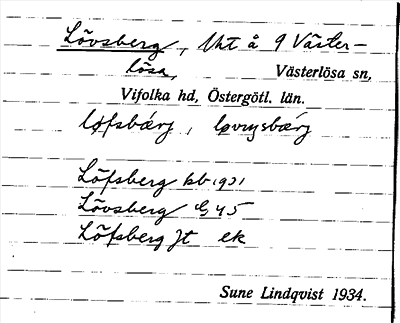 Lövsberg, Uht å 9 Väster-
lösa, Västerlösa sn,
Vifolka hd, Östergötl. län.
løfsbærj,
Löfsberg kb 1931
Lövsberg 45
Löfsberg Jt ek
Sune Lindqvist 1934.